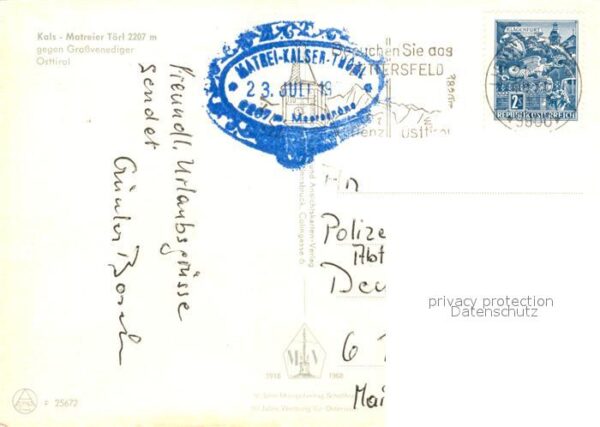 Kals - Matreier Törl 2207 m
gegen Großvenediger
Osttirol
Freundl. Urlaubsgrüsse
sendet
Günter
MATREI-KALSER-THÖRL
23. JULI 19
2207 m Meereshöhe
Besuchen Sie das
ZETTERSFELD
Lienz Osttirol
KLAGENFURT
2
REPUBLIK ÖSTERREICH
9900
An
Polize
Abt
Deu
6
Mai
und Ansichtskarten-Verlag
Innsbruck, Colingasse 6
M V
1918 1968
F 25672
privacy protection
Datenschutz